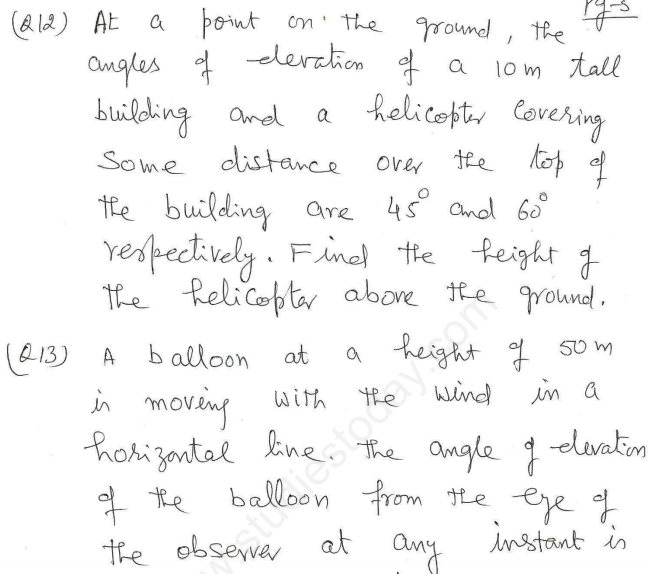 Pg-5
(Q12) At a point on the ground, the
angles of elevation of a 10 m tall
building and a helicopter covering
some distance over the top of
the building are 45° and 60°
respectively. Find the height of
the helicopter above the ground.
(Q13) A balloon at a height of 50 m
is moving with the wind in a
horizontal line. The angle of elevation
of the balloon from the eye of
the observer at any instant is
www.studiestoday.com